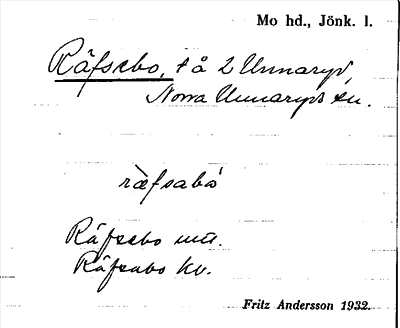 Mo hd., Jönk. l.
Räfsebo, t å 2 Unnaryd,
Norra Unnaryds sn.
ræfsabó
Räfsebo
Räfsabo kv.
Fritz Andersson 1932.